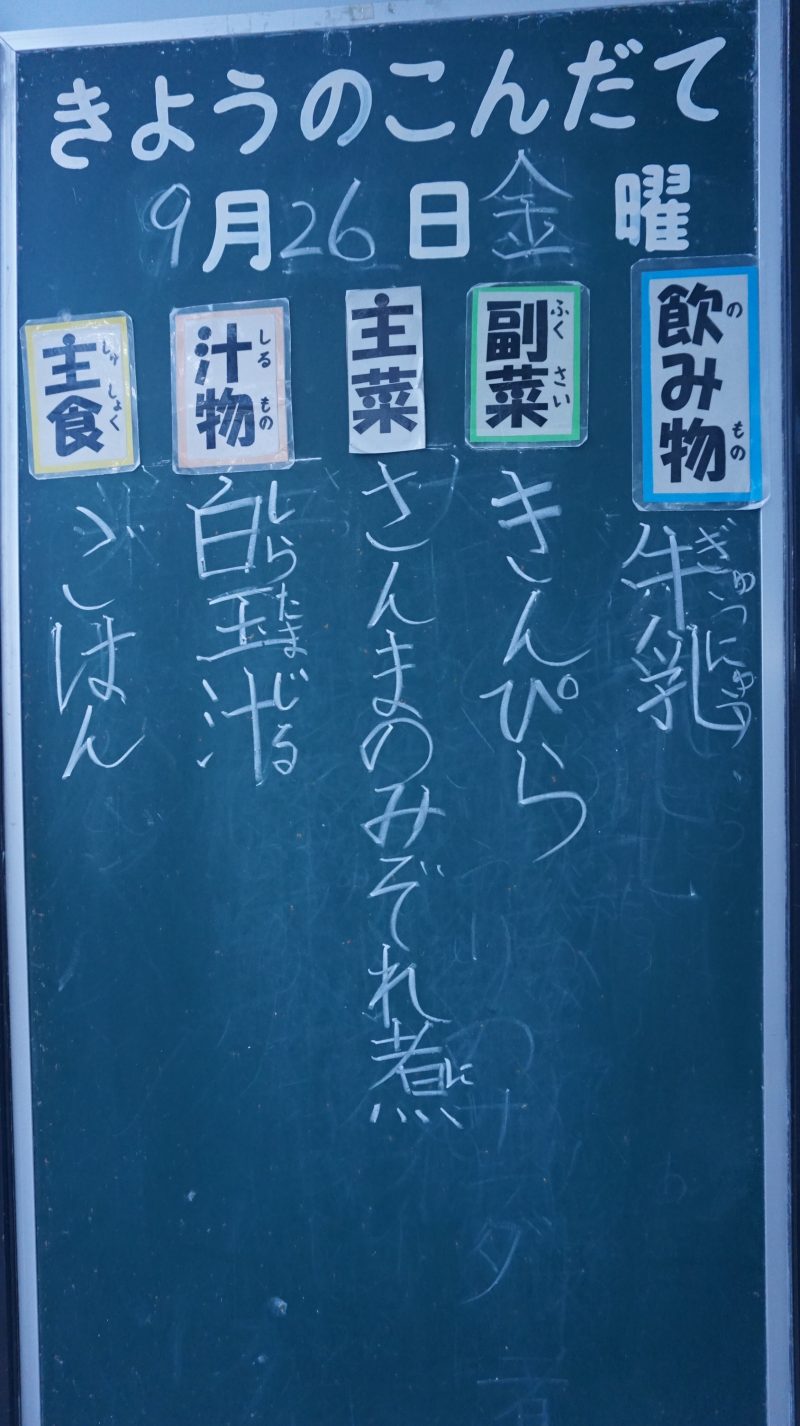 きょうのこんだて
9月26日金曜
飲み物
の
もの
牛乳
ぎゅうにゅう
副菜
ふくさい
きんぴら
主菜
さんまのみぞれ煮
に
汁物
しるもの
白玉汁
しらたまじる
主食
しゅしょく
ごはん